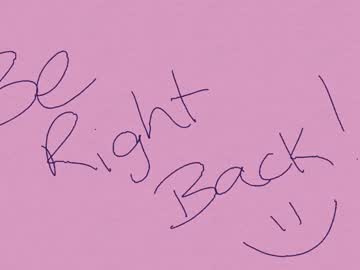 Be
Right
Back!